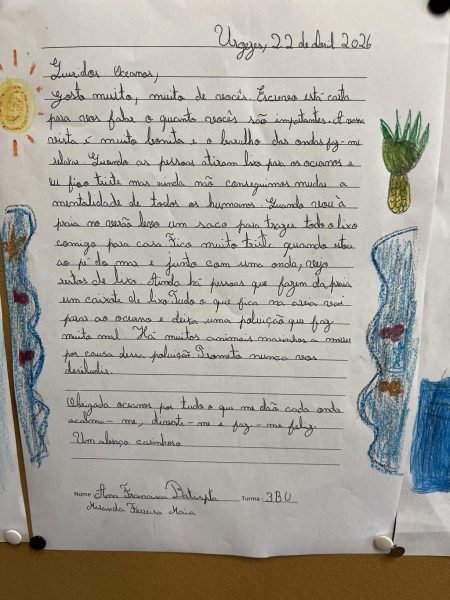 Urgezes, 22 de abril 2026
Queridos Oceanos,
Gosto muito, muito de vocês. Escrevo esta carta
para vos falar o quanto vocês são importantes. A vossa
vista é muito bonita e o barulho das ondas faz-me
relaxar. Quando as pessoas atiram lixo para os oceanos e
eu fico triste mas ainda não conseguimos mudar a
mentalidade de todos os humanos. Quando vou à
praia no verão levo um saco para trazer todo o lixo
comigo para casa. Fico muito triste quando estou
ao pé do mar e junto com uma onda, vejo
restos de lixo. Ainda há pessoas que fazem da praia
um caixote de lixo. Tudo o que fica na areia vai
para ao oceano e deixa uma poluição que faz
muito mal. Há muitos animais marinhos a morrer
por causa dessa poluição. Prometo nunca vos
desiludir.
Obrigada oceanos por tudo o que me dão cada onda
acalma-me, diverte-me e faz-me feliz.
Um abraço carinhoso
Nome: Ana Francisca Batista Turma: 3BU
Miranda Ferreira Maia